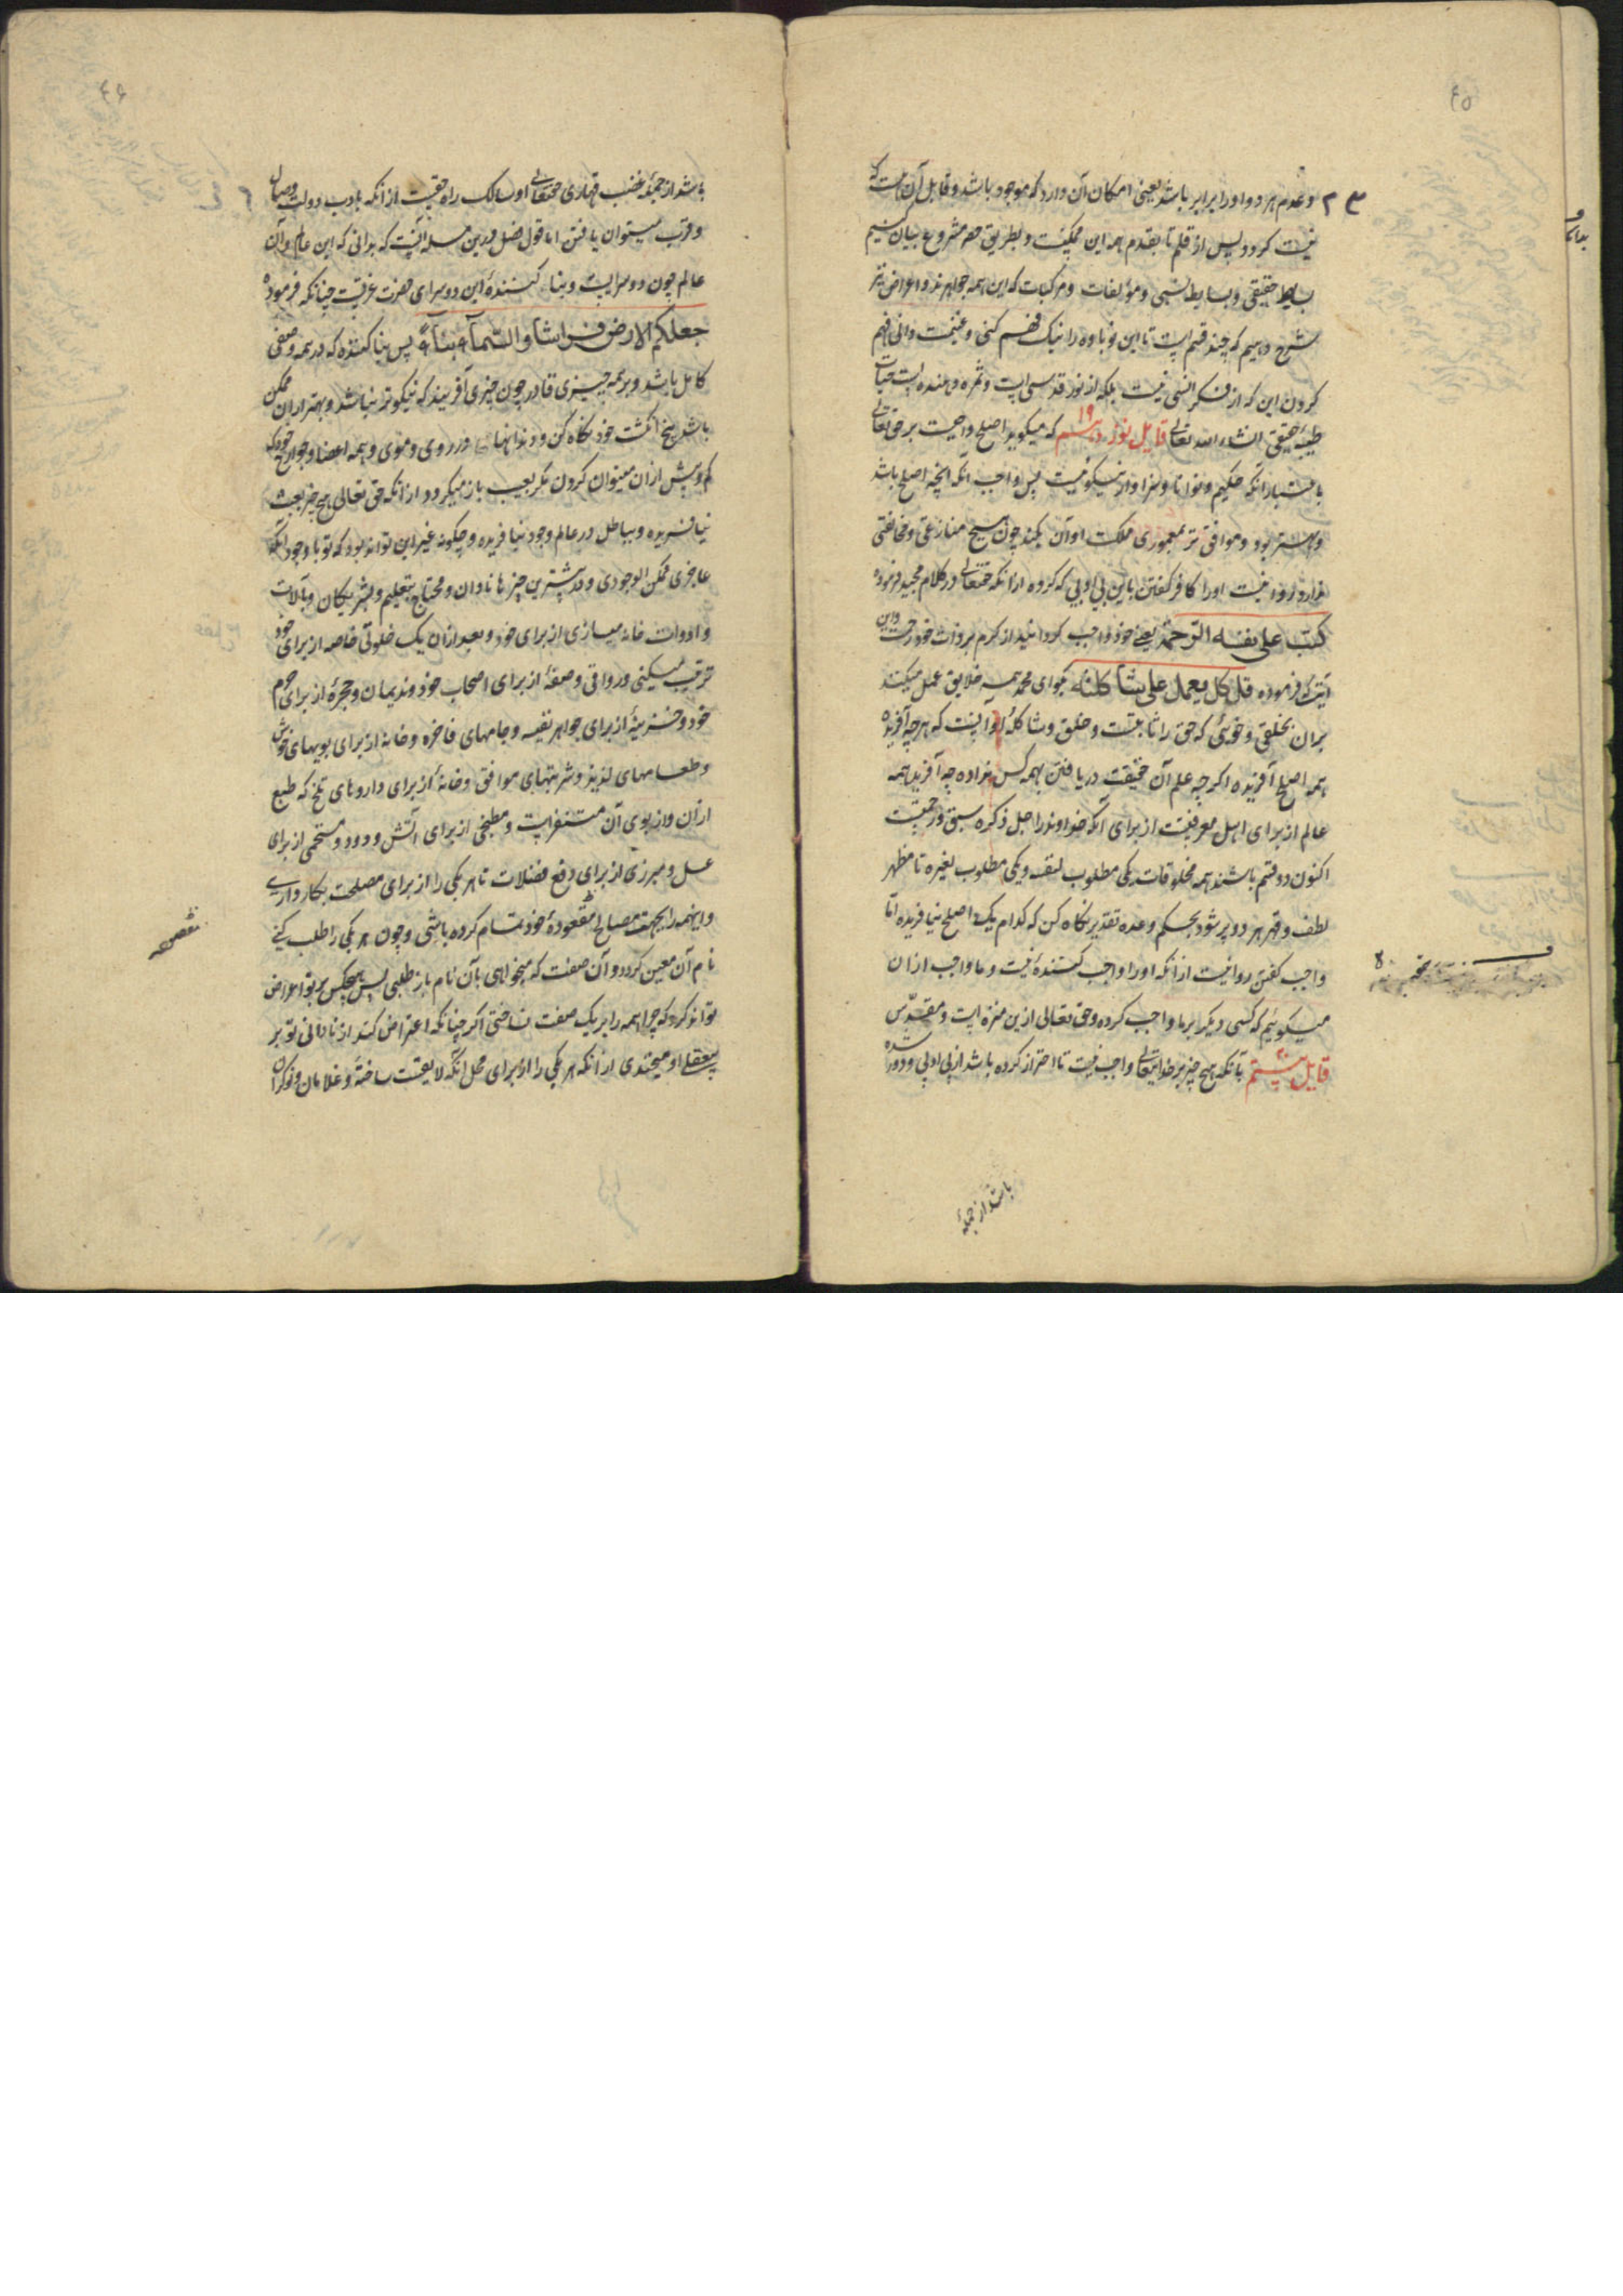 ٤٥
وعدم هر دو او را برابر باشد یعنی امکان آن دارد که موجود باشد و قابل آن هست که
نیست کردد پس از قلم تا بقدم همه این ممکنست و بطریق حصر مشروع بیان کنیم
بسایط حقیقی و بسایط نسبی و مؤلفات و مرکبات که این همه جواهرند و اعراض نیز
شرح دهیم که چند قسم است تا این نوباوه را نیک فهم کنی و غنیمت دانی فهم
کردن این که از فکر انسی نیست بلکه از نور قدسی است و ثمره دهنده است حیات
طیبهٔ حقیقی انشاء الله تعالی قایل نوزدهم ١٩ که میکوید اصلح واجبست بر حق تعالی
باعتبار آنکه حکیم و توانا و سزاوار نیکوئیست پس واجب آنکه آنچه اصلح باشد
و بهتر بود و موافق تر بمعموری مملکت او آن بکند چون هیچ منازعی و مخالفی
ندارد روا نیست او را کافر کفتن باین بی ادبی که کرده از آنکه حقتعالی در کلام مجید فرموده
کتب علی نفسه الرحمة یعنی خود واجب کردانید از کرم بر ذات خود رحمت و این
آیت که فرموده قل کل یعمل علی شاکلته بکو ای محمد همه خلایق عمل میکنند
بران خلقی و خوئی که حق را ثابتست و خلق و شاکلهٔ او آنست که هر چه آفریده
همه اصلح آفریده اکر چه علم آن حقیقت دریافتن بهمه کس نداده چه آفریدن همه
عالم از برای اهل معرفتست از برای آنکه خداوند را جل ذکره سبق رحمتست
اکنون دو قسم باشند همه مخلوقات یکی مطلوب لنفسه و یکی مطلوب لغیره تا مظهر
لطف و قهر هر دو پر شود بحکم وعده تقدیر نکاه کن که کدام یک اصلح نیافریده اما
واجب کفتن روا نیست از آنکه او را واجب کننده نیست و ما واجب ازان
میکوئیم که کسی دیکر بر ما واجب کرده و حق تعالی ازین منزه است و مقدس
قایل بیستم بآنکه هیچ چیز بر خدایتعالی واجب نیست تا احتراز کرده باشد از بی ادبی و دور شده
باشد از جملهٔ
٤٦
باشد از جملهٔ غضب قهاری حقتعالی او سالک راه حقست از آنکه بادب دولت وصال
و قرب میتوان یافتن اما قول فصل درین مسله آنست که بدانی که این عالم و آن
عالم چون دو سرایست و بنا کنندهٔ این دو سرای حضرت عزتست چنانکه فرموده
جعل لکم الارض فراشا والسماء بناء پس بنا کننده که در همه وصفی
کامل باشد و بر همه چیزی قادر چون چیزی آفریند که نیکوتر نباشد و بهتر ازان ممکن
باشد پنج انکشت خود نکاه کن و دندانها و در روی و موی و همه اعضا و جوارح خود که
کم و بیش ازان میتوان کردن مکر بعیب باز میکردد از آنکه حق تعالی هیچ چیز بعبث
نیافریده و بباطل در عالم وجود نیافریده و چکونه غیر این تواند بود که تو با وجود آنکه
عاجزی ممکن الوجودی و در بیشترین چیزها نادان و محتاج بتعلیم و بشریکان و بآلات
و ادوات خانه میسازی از برای خود و بعد ازان یک خلوتی خاصه از برای خود
ترتیب میکنی و رواقی و صفهٔ از برای اصحاب خود و ندیمان و حجرهٔ از برای حرم
خود و خزینهٔ از برای جواهر نفیسه و جامهای فاخره و خانهٔ از برای بویهای خوش
و طعامهای لذیذ و شربتهای موافق و خانهٔ از برای داروهای تلخ که طبع
ازان و از بوی آن متنفر است و مطبخی از برای آتش و دود و مستحمی از برای
غسل و مبرزی از برای دفع فضلات تا هر یکی را از برای مصلحت بکار داری
و اینهمه را بجهت مصالح مقصودهٔ خود تمام کرده باشی و چون هر یکی را طلب کنی
نام آن معین کردد و آن صفت که میخواهی بآن نام باز طلبی پس هیچکس بر تو اعراض
تواند کرد که چرا همه را بر یک صفت نساختی اکر چنانکه اعتراض کند از نادانی تو بر
بیعقلی او میخندی از آنکه هر یکی را از برای محل آنکه لایقست ساختهٔ و غلامان و نوکران